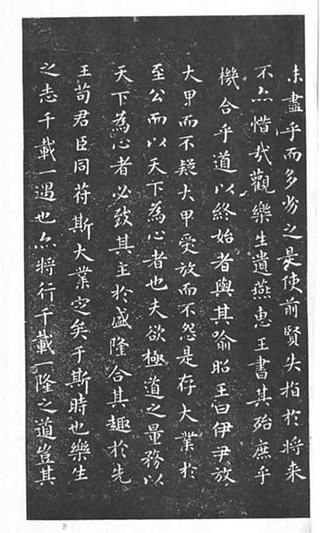 未盡乎而多劣之是使前賢失指於将来
不亦惜哉觀樂生遺燕惠王書其殆庶乎
機合乎道以終始者與其喻昭王曰伊尹放
大甲而不疑大甲受放而不怨是存大業於
至公而以天下為心者也夫欲極道之量務以
天下為心者必致其主於盛隆合其趣於先
王苟君臣同苻斯大業定矣于斯時也樂生
之志千載一遇也亦将行千載一隆之道豈其